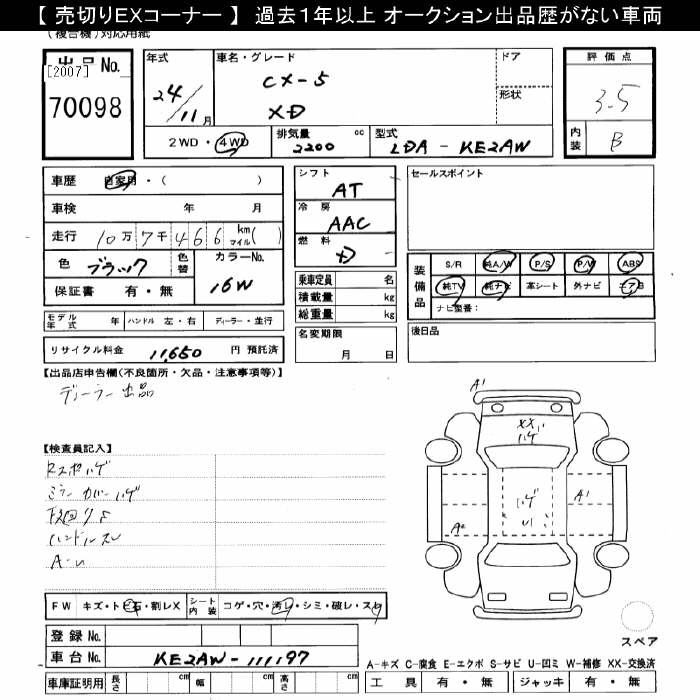 【 売切りEXコーナー 】 過去１年以上 オークション出品歴がない車両
(複合機)対応用紙
出品No.
[2007]
70098
年式
24/11月
車名・グレード
CX-5
XD
ドア
形状
評価点
3.5
内装
B
2WD・4WD
排気量
2200 cc
型式
LDA - KE2AW
車歴 自家用・( )
車検 年 月
走行 10万7千466 km マイル( )
色 ブラック 色替 カラーNo. 16W
保証書 有・無
モデル年式 年 ハンドル 左・右 ディーラー・並行
リサイクル料金 11,650 円 預託済
シフト
AT
冷房
AAC
燃料
D
乗車定員 名
積載量 kg
総重量 kg
名変期限
月 日
セールスポイント
装備品
S/R 純A/W P/S P/W ABS
純TV 純ナビ 革シート 外ナビ エアB
ナビ型番:
後日品
【出品店申告欄(不良箇所・欠品・注意事項等)】
ディーラー出品
【検査員記入】
ミラーカバーハゲ
下廻りS
ハンドルスレ
A-U
A1
XX
ハゲ
ハゲ
U1
A1
A2
スペア
FW キズ・トビ石・割レX シート内装 コゲ・穴・汚レ・シミ・破レ・スレ
登録No.
車台No. KE2AW-111197
車庫証明用 長さ cm 幅 cm 高さ cm
A-キズ C-腐食 E-エクボ S-サビ U-凹ミ W-補修 XX-交換済
工具 有・無 ジャッキ 有・無